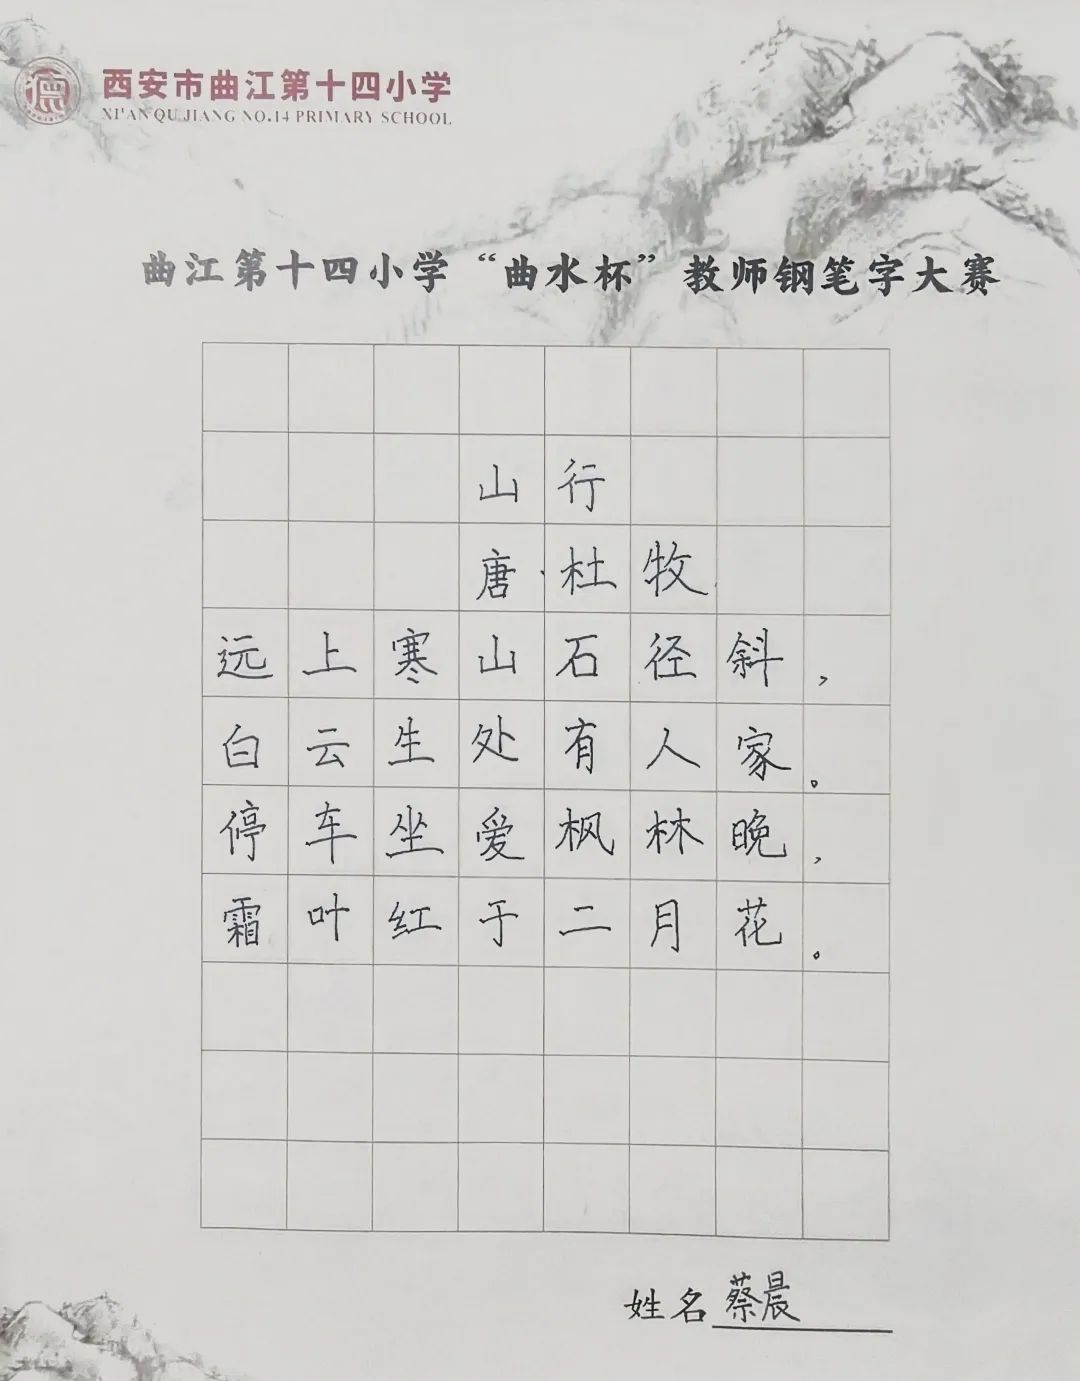 西安市曲江第十四小学
XI'AN QU JIANG NO.14 PRIMARY SCHOOL
曲江第十四小学“曲水杯”教师钢笔字大赛
山行
唐·杜牧
远上寒山石径斜，
白云生处有人家。
停车坐爱枫林晚，
霜叶红于二月花。
姓名 蔡晨